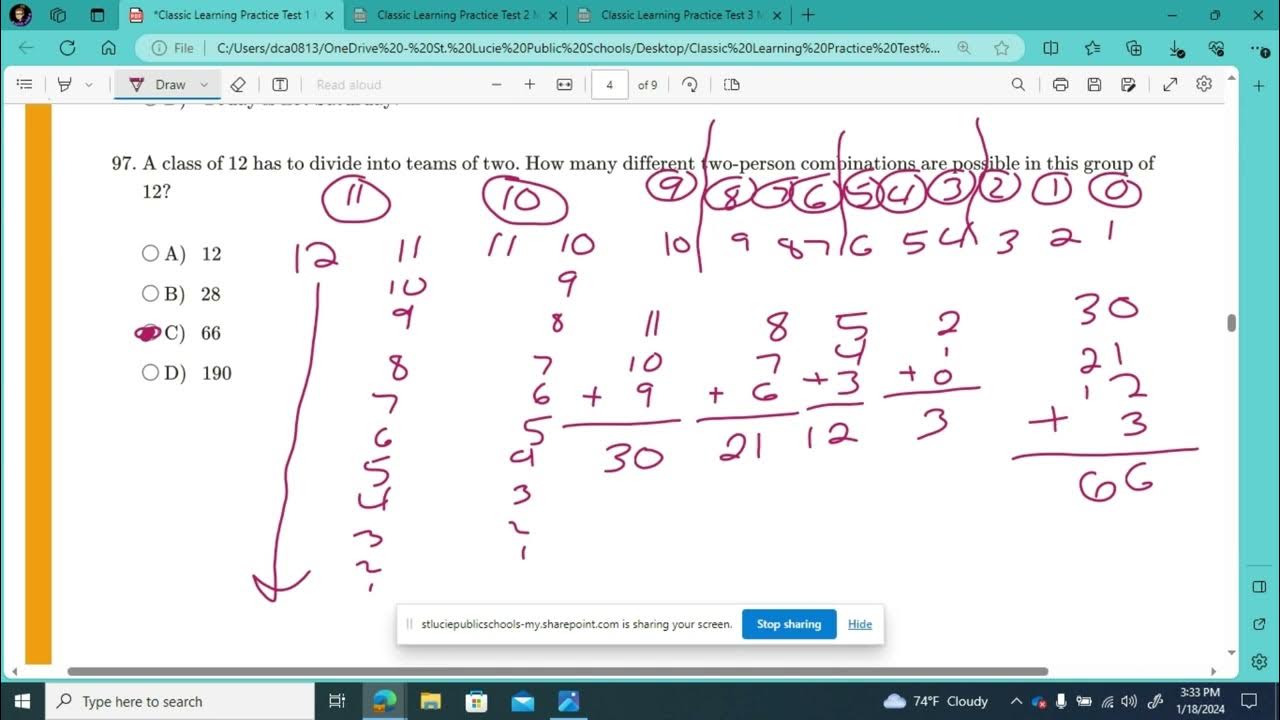 *Classic Learning Practice Test 1
Classic Learning Practice Test 2
Classic Learning Practice Test 3
File
C:/Users/dca0813/OneDrive%20-%20St.%20Lucie%20Public%20Schools/Desktop/Classic%20Learning%20Practice%20Test%...
Draw
Read aloud
4
of 9
97. A class of 12 has to divide into teams of two. How many different two-person combinations are possible in this group of
12?
11 10 9 8 7 6 5 4 3 2 1 0
A) 12
B) 28
C) 66
D) 190
12 11 11 10 10 9 8 7 6 5 4 3 2 1
10 9
9 8 11 8 5 2 30
8 7 10 7 4 1 21
7 6 + 9 + 6 + 3 + 0 12
6 5 30 21 12 3 + 3
5 4 66
4 3
3 2
2 1
1
stluciepublicschools-my.sharepoint.com is sharing your screen.
Stop sharing
Hide
Type here to search
74°F Cloudy
3:33 PM
1/18/2024